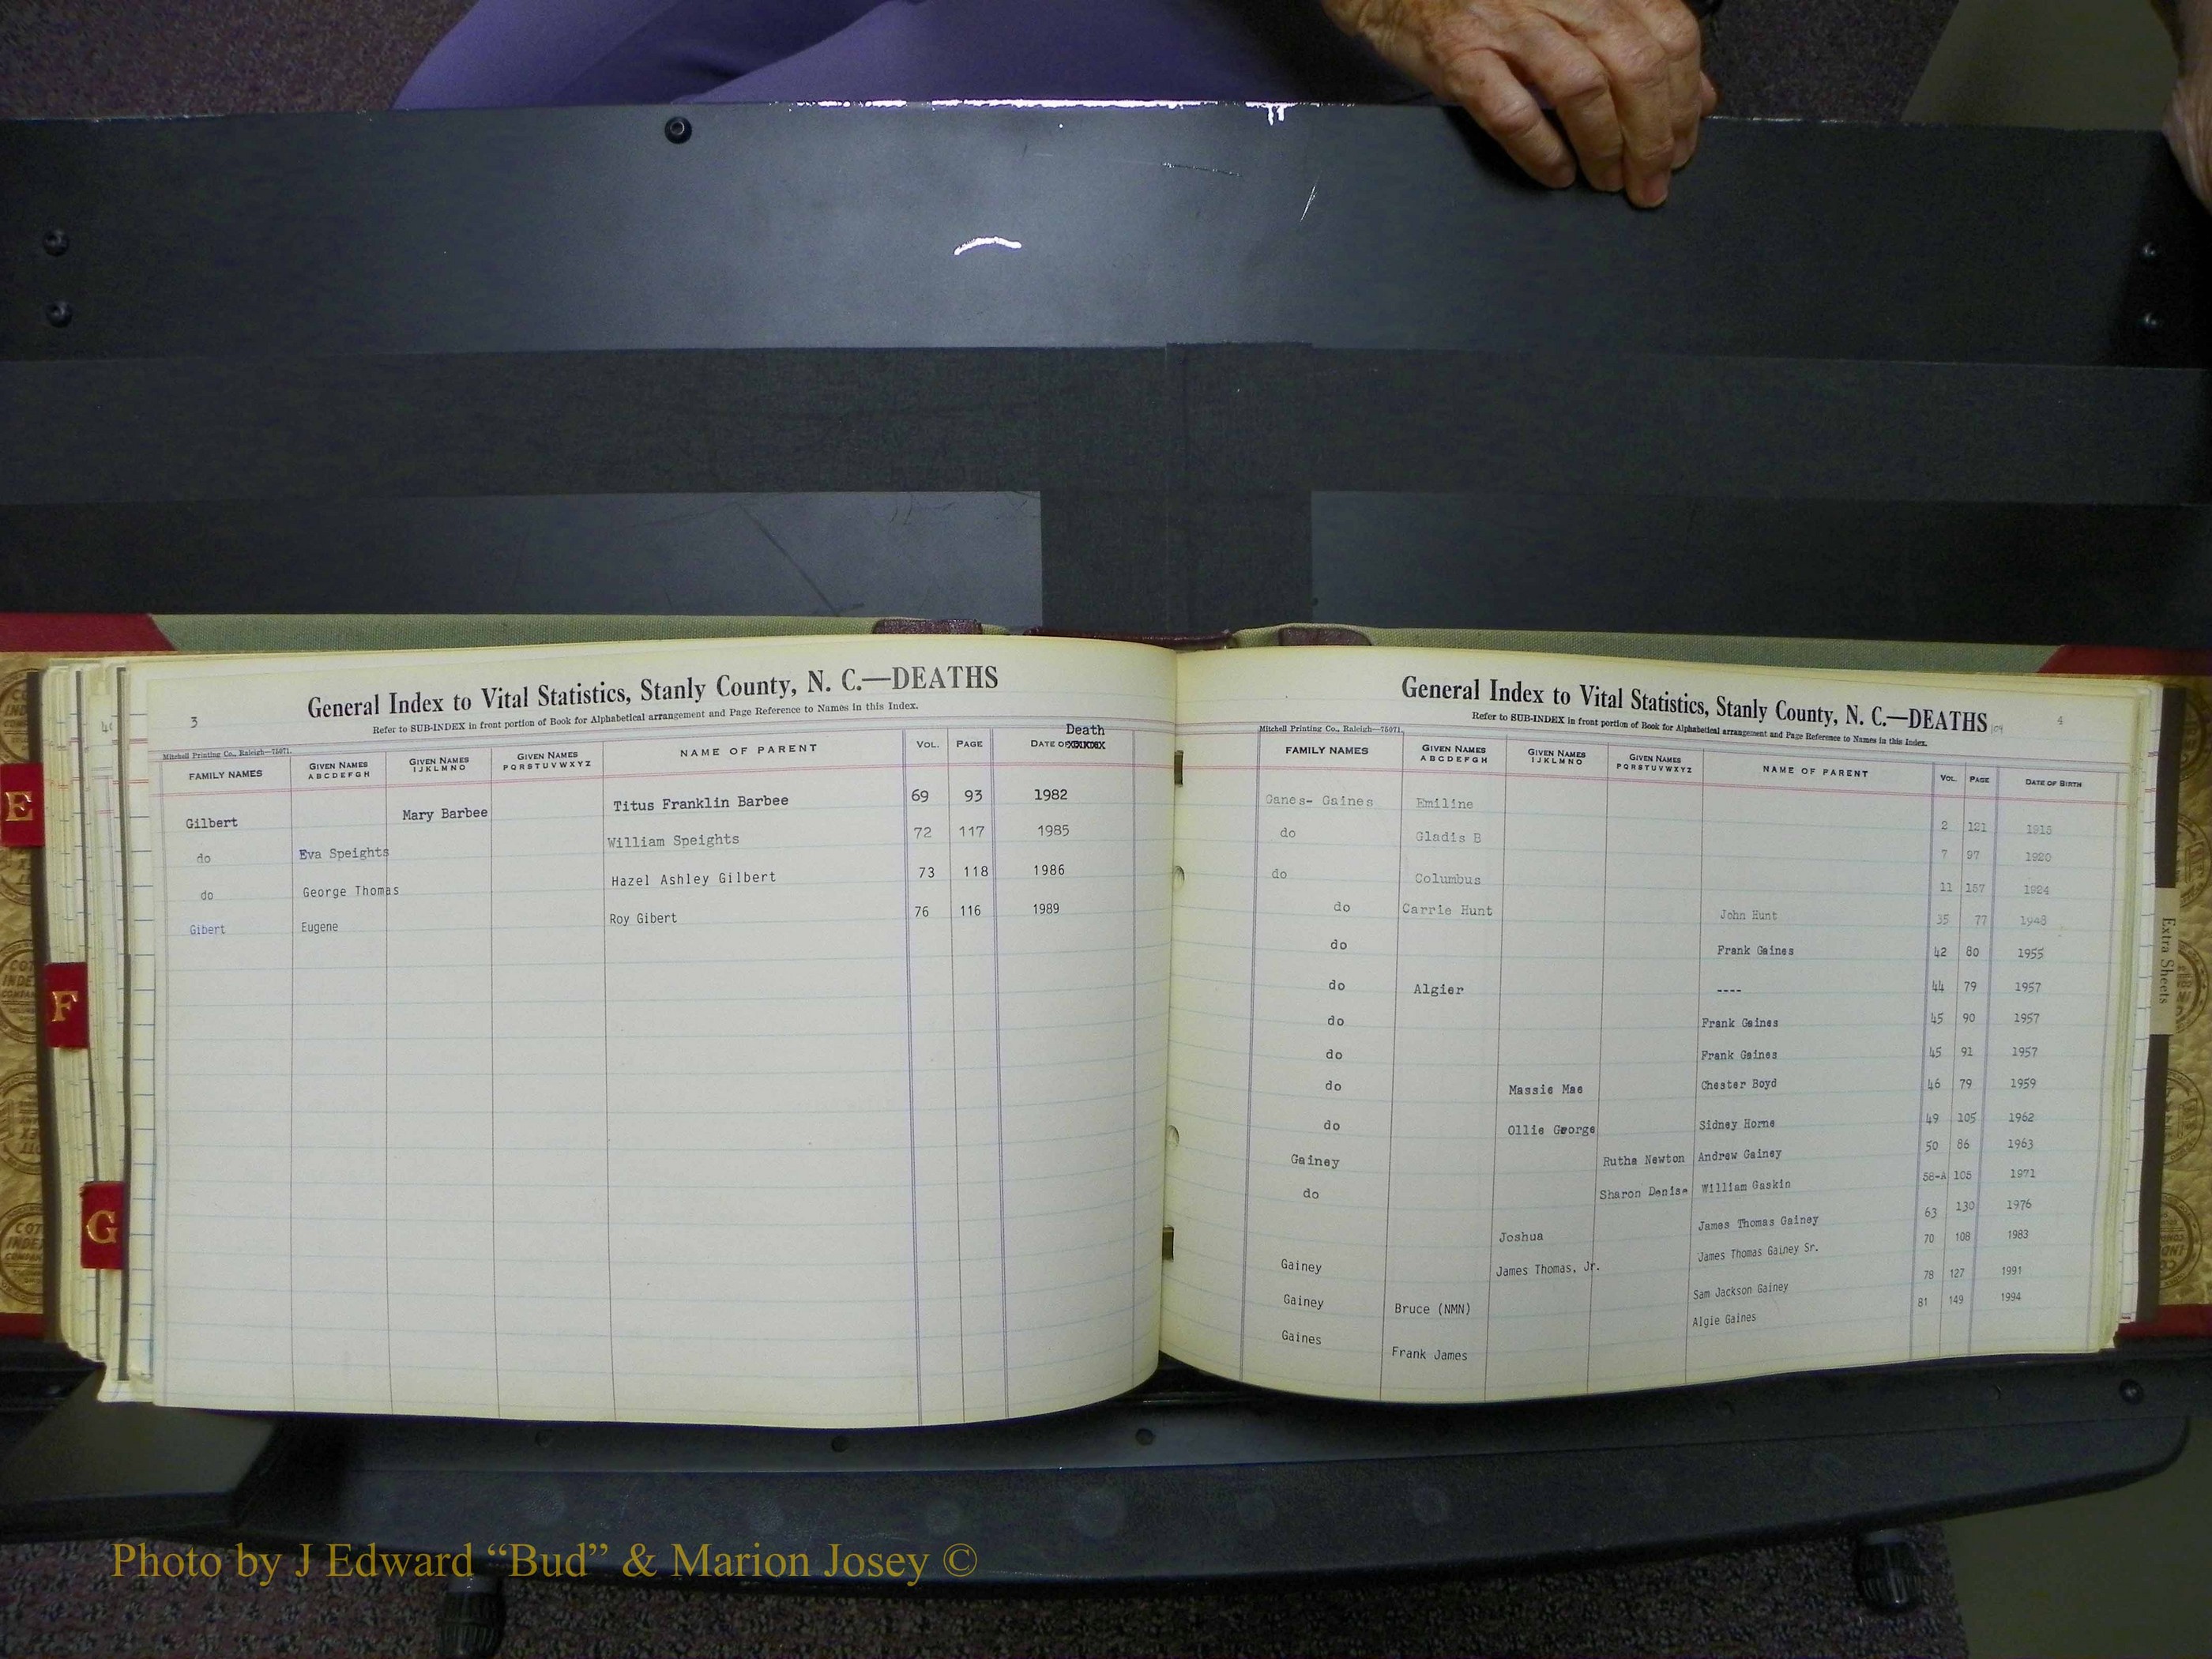 3
General Index to Vital Statistics, Stanly County, N. C.—DEATHS
Refer to SUB-INDEX in front portion of Book for Alphabetical arrangement and Page Reference to Names in this Index.
Mitchell Printing Co., Raleigh—75071.
Death
FAMILY NAMES GIVEN NAMES ABCDEFGH GIVEN NAMES IJKLMNO GIVEN NAMES PQRSTUVWXYZ NAME OF PARENT VOL. PAGE DATE OF
Gilbert Mary Barbee Titus Franklin Barbee 69 93 1982
do Eva Speights William Speights 72 117 1985
do George Thomas Hazel Ashley Gilbert 73 118 1986
Gibert Eugene Roy Gibert 76 116 1989
4
General Index to Vital Statistics, Stanly County, N. C.—DEATHS
Refer to SUB-INDEX in front portion of Book for Alphabetical arrangement and Page Reference to Names in this Index.
Mitchell Printing Co., Raleigh—75071.
FAMILY NAMES GIVEN NAMES ABCDEFGH GIVEN NAMES IJKLMNO GIVEN NAMES PQRSTUVWXYZ NAME OF PARENT VOL. PAGE DATE OF BIRTH
Ganes- Gaines Emiline 2 121 1915
do Gladis B 7 97 1920
do Columbus 11 157 1924
do Carrie Hunt John Hunt 35 77 1948
do Frank Gaines 42 80 1955
do Algier ---- 44 79 1957
do Frank Gaines 45 90 1957
do Frank Gaines 45 91 1957
do Massie Mae Chester Boyd 46 79 1959
do Ollie George Sidney Horne 49 105 1962
Gainey Rutha Newton Andrew Gainey 50 86 1963
do Sharon Denise William Gaskin 58-A 105 1971
Joshua James Thomas Gainey 63 130 1976
Gainey James Thomas, Jr. James Thomas Gainey Sr. 70 108 1983
Gainey Bruce (NMN) Sam Jackson Gainey 78 127 1991
Gaines Frank James Algie Gaines 81 149 1994
E
F
G
Extra Sheets
Photo by J Edward “Bud” & Marion Josey ©